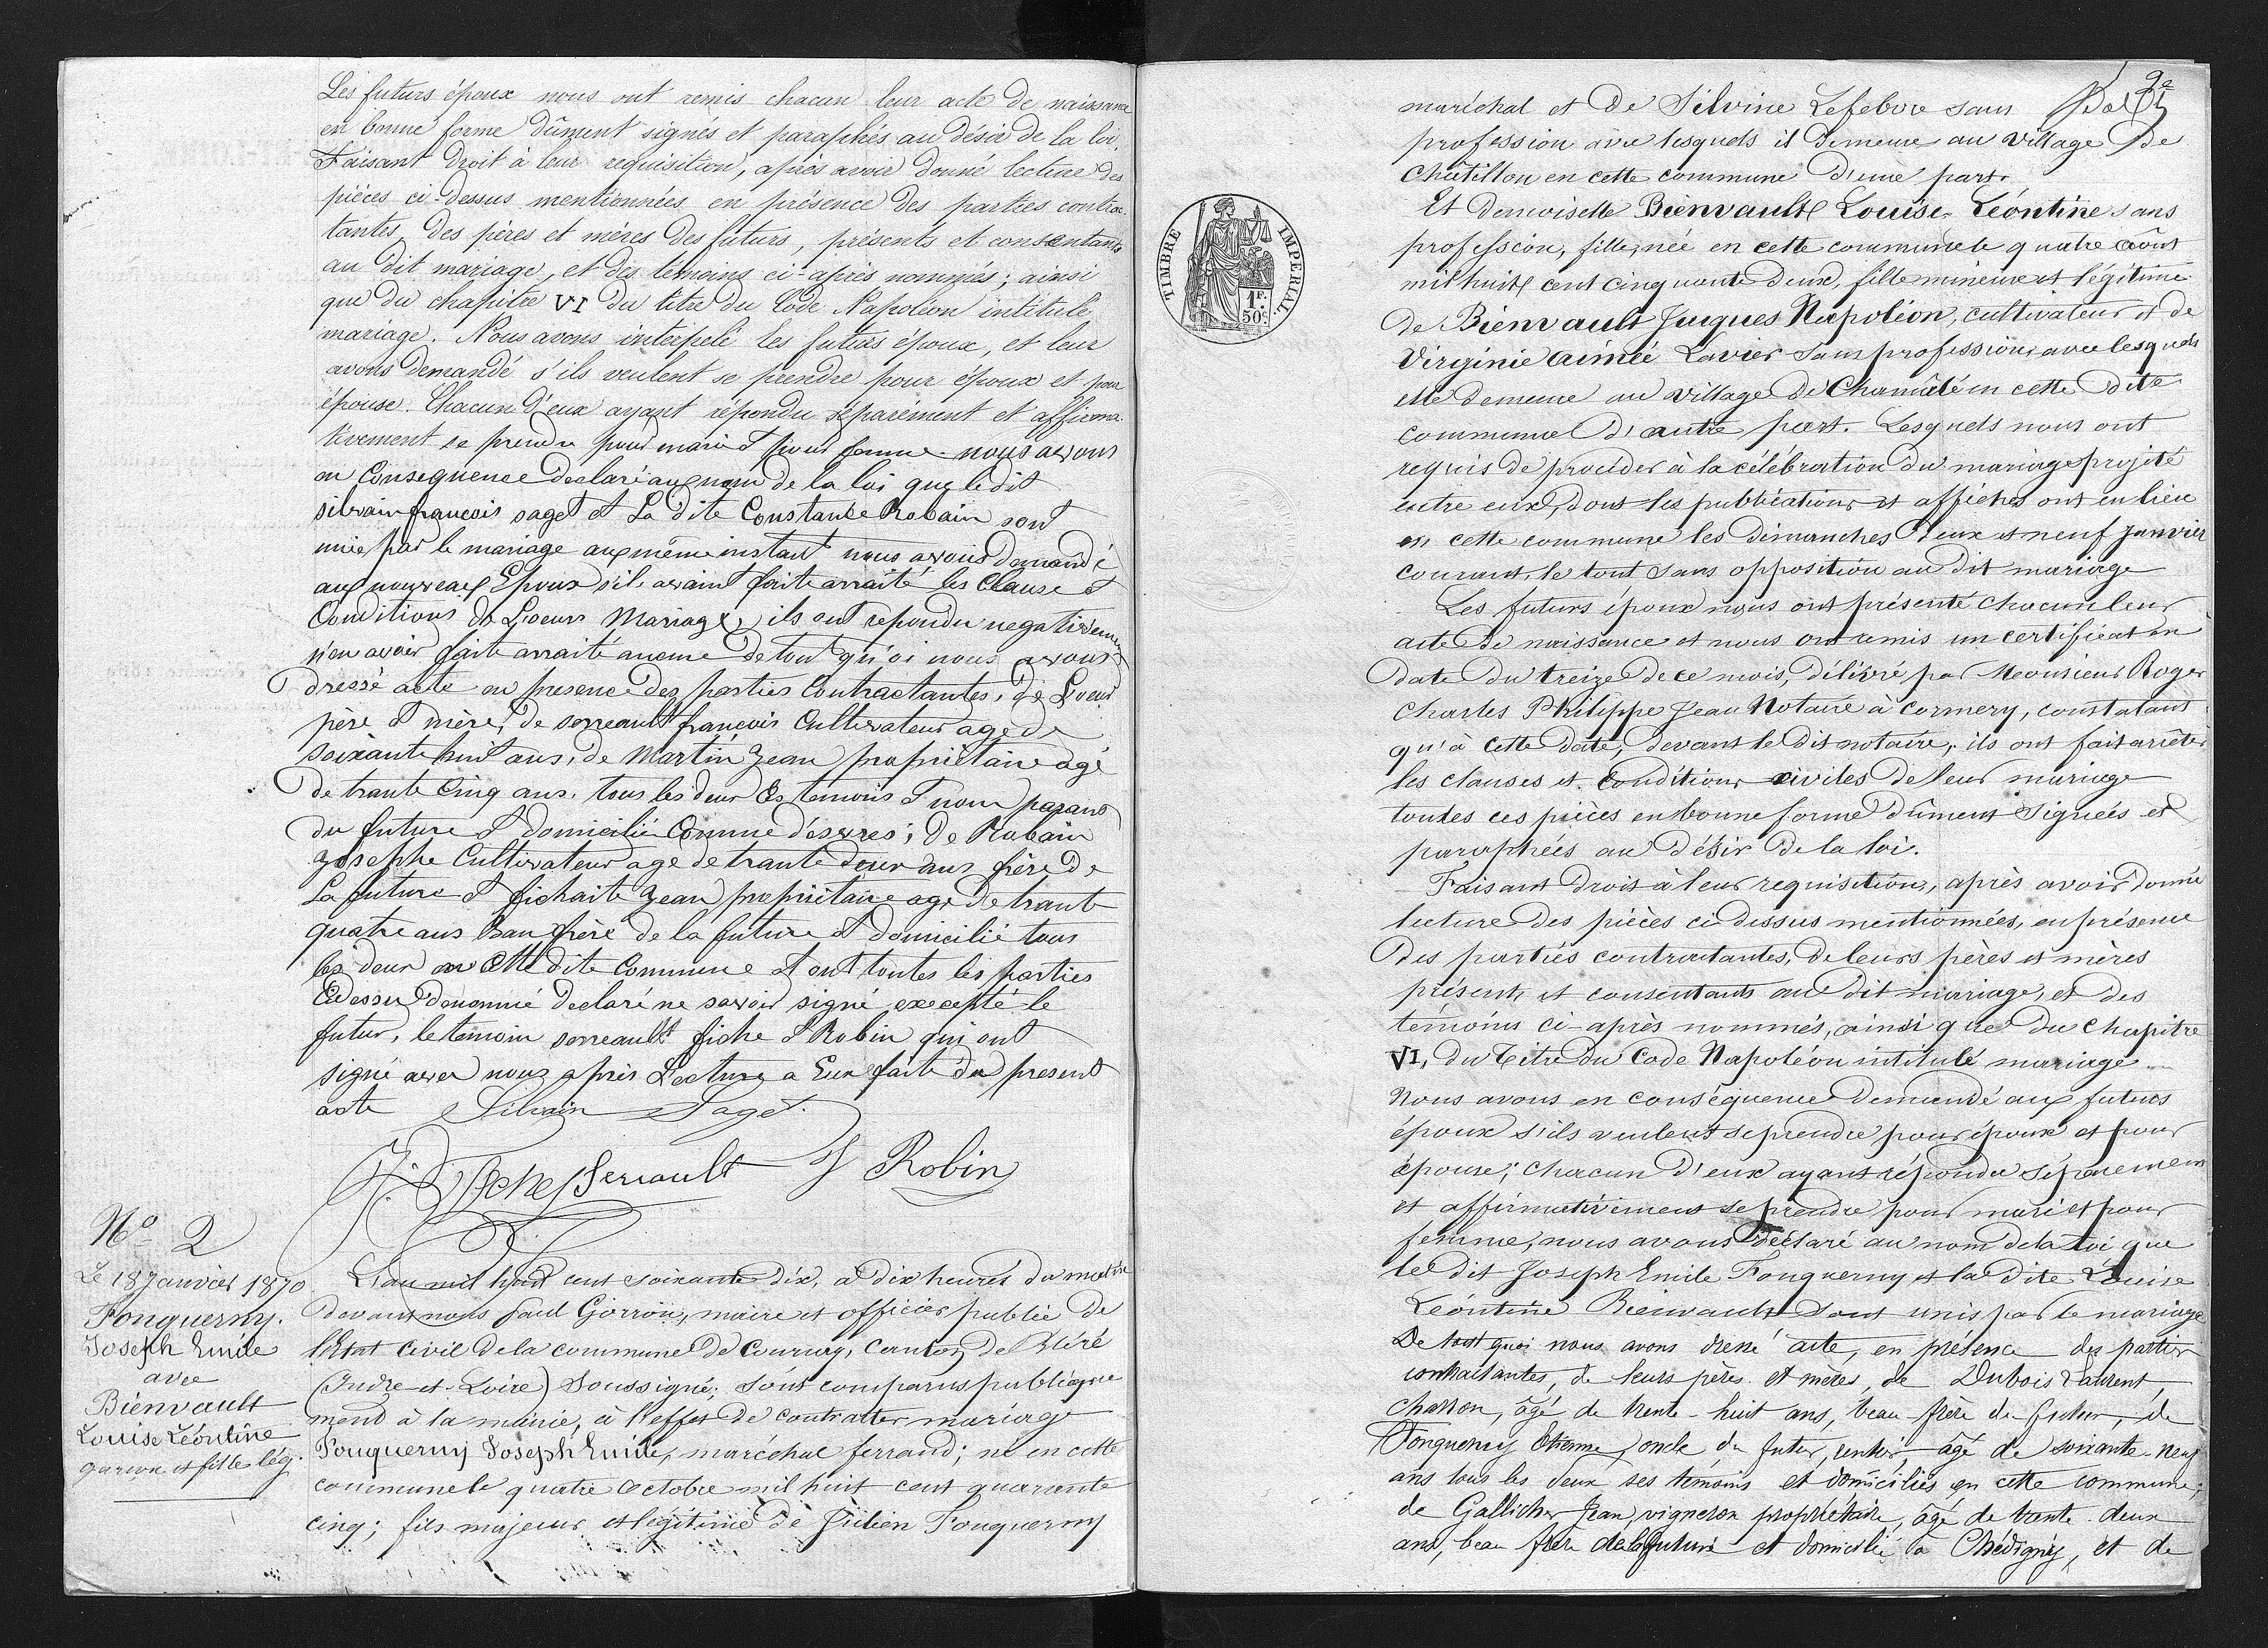 Les futurs époux nous ont remis chacun leur acte de naissance
en bonne forme dûment signés et paraphés au désir de la loi.
Faisant droit à leur requisition, après avoir donné lecture des
pièces ci-dessus mentionnées en présence des parties contrac
tantes, des pères et mères des futurs, présents et consentants
au dit mariage, et des témoins ci-après nommés; ainsi
que du chapitre VI du titre du Code Napoléon intitulé
mariage. Nous avons interpelé les futurs époux, et leur
avons demandé s'ils veulent se prendre pour époux et pour
épouse. Chacun d'eux ayant répondu séparément et affirma
tivement se prendre pour mari et pour femme. nous avons
en Consequence declaré au nom de la loi que ledit
silvain françois saget et La dite Constance Robain sont
unie par le mariage au même instant nous avons demandé
aux nouveaux Epoux s'il avaint faite arraité les Clause et
Conditions de Loeurs Mariage, ils ont repondu negativement
n'en avoir faite arraité aucune De tout qu'oi nous avons
dressé acte en presence des parties Contractantes, de Loeur
père et mère, de serreault françois Cultivateur age de
soixante huit ans, de Martin Jean propriétaire agé
De trante Cinq ans. tous les deux Es temoins et nom parans
du future et domicilié Comme déssus; de Robain
Josephe Cultivateur age de trante deux ans frère de
La future et fichaite Jean propriétaire age de trante
quatre ans beau frère de la future et domicilié tous
les deux en cette dite Commune et ont toutes les parties
Cidessu denommé declaré ne savoir signé excepté le
futur, le temoin serreault fiche et Robin qui ont
signé avec nous après Lecture a Eux faite du present
acte Silvain Saget.
Fiche Serreault J Robin
No 2
Le 18 Janvier 1870
Fonquerny.
Joseph Emile
avec
Bienvault
Louise Léontine
garcon et fille lég.
L'an mil huit cent soixante dix, a dix heures du matin
devant nous Paul Gorron, maire et officier public de
l'Etat civil de la commune de Courcay, Canton de Bléré
(Indre-et-Loire) Soussigné; sont comparus publique
ment à la mairie, à l'effet de contracter mariage
Fouquerny Joseph Emile, maréchal ferrand; né en cette
commune le quatre octobre mil huit cent quarante
cinq; fils majeur et légitime de Julien Fonquerny
2e
maréchal et de Silvine Lefebvre sans
profession avec lesquels il demeure au village de
Châtillon en cette commune d'une part.
Et demoiselle Bienvault Louise Léontine sans
profession, fille, née en cette commune le quatre aôut
mil huit cent cinquante deux, fille mineure et légitime
de Bienvault Jacques Napoléon, cultivateur et de
Virginie aimée Lavier sans profession avec lesquels
elle demeure au village de Chanûté en cette dite
commune d'autre part. Lesquels nous ont
requis de procéder à la célébration du mariage projeté
entre eux, dont les publications et affiches ont eu lieu
en cette commune les dimanches deux et neuf janvier
courant, le tout sans opposition au dit mariage
Les futurs époux nous ont présenté chacun leur
acte de naissance et nous ont remis un certificat en
date du treize de ce mois, délivré par Monsieur Roger
Charles Philippe Jean Notaire à Cormery, constatant
qu'à cette date, devant le dit notaire, ils ont fait arrêter
les clauses et conditions civiles de leur mariage
toutes ces pièces en bonne forme dûment signées et
paraphées au désir de la loi.
Faisant droit à leur requisition, après avoir donné
lecture des pièces ci dessus mentionnées, en présence
des parties contractantes, de leurs pères et mères
présents et consentants au dit mariage, et des
témoins ci-après nommés, ainsi que du chapitre
VI, du titre du Code Napoléon intitulé mariage
Nous avons en conséquence demandé aux futurs
époux s'ils veulent se prendre pour époux et pour
épouse; chacun d'eux ayant répondu séparement
et affirmativement se prendre pour mari et pour
femme, nous avons déclaré au nom de la loi que
le dit Joseph Emile Fonquerny et la dite Louise
Léontine Bienvault sont unis par le mariage
De tout quoi nous avons dressé acte, en présence des parties
contractantes, de leurs pères et mères, de Dubois Laurent,
charron, âgé de trente-huit ans, beau-frère du futur, de
Fonquerny Etienne, oncle du futur, rentier, âgé de soixante-neuf
ans tous les deux ses témoins et domiciliés en cette commune;
de Gallicher Jean, vigneron propriétaire, âgé de trente-deux
ans, beau frère de la future et domicilié à Chédigny, et de
TIMBRE IMPERIAL.
1F.
50c.